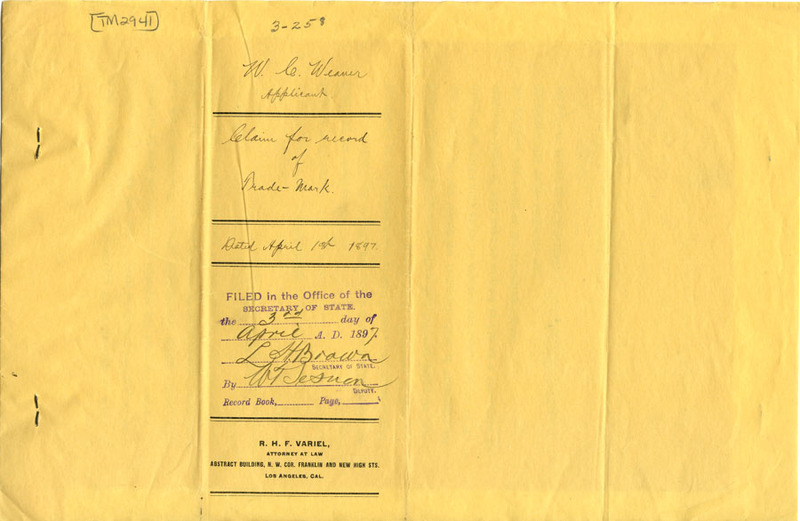 [TM2941]
3-258
W. C. Weaver
Applicant.
Claim for record
of
Trade-Mark.
Dated April 1st 1897.
FILED in the Office of the
SECRETARY OF STATE.
the 3rd day of
April A. D. 1897.
L. H. Brown
SECRETARY OF STATE.
By
DEPUTY.
Record Book, Page,
R. H. F. VARIEL,
ATTORNEY AT LAW
ABSTRACT BUILDING, N. W. COR. FRANKLIN AND NEW HIGH STS.
LOS ANGELES, CAL.